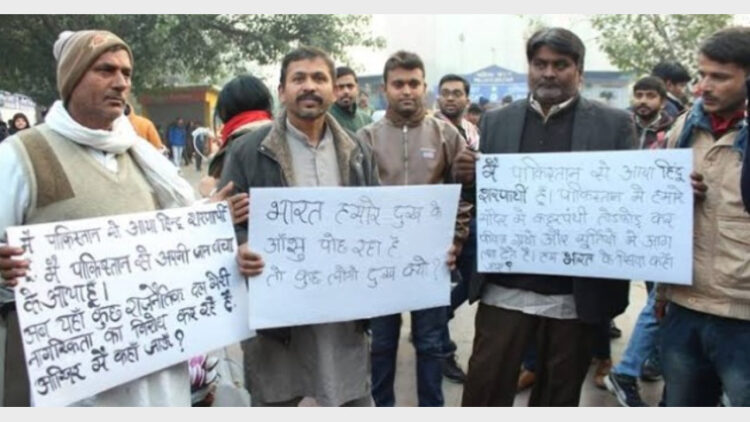 मैं पाकिस्तान से आया हिन्दू
मैं पाकिस्तान से अपनी जान बचा
के आया हूं।
अब यहाँ कुछ राजनैतिक दल मेरी
नागरिकता का विरोध कर रहे हैं.
आखिर मैं कहाँ जाऊँ?
भारत हमारे दुख के
आँसू पोंछ रहा है
तो कुछ लोगों दुख क्यों?
मैं पाकिस्तान से आया हिंदू
शरणार्थी हूँ। पाकिस्तान में हमारे
मंदिर में कट्टरपंथी तोड़फोड़ कर
ग्रंथों और मूर्तियों में आग
लगा देते हैं। हम भारत के सिवा कहाँ